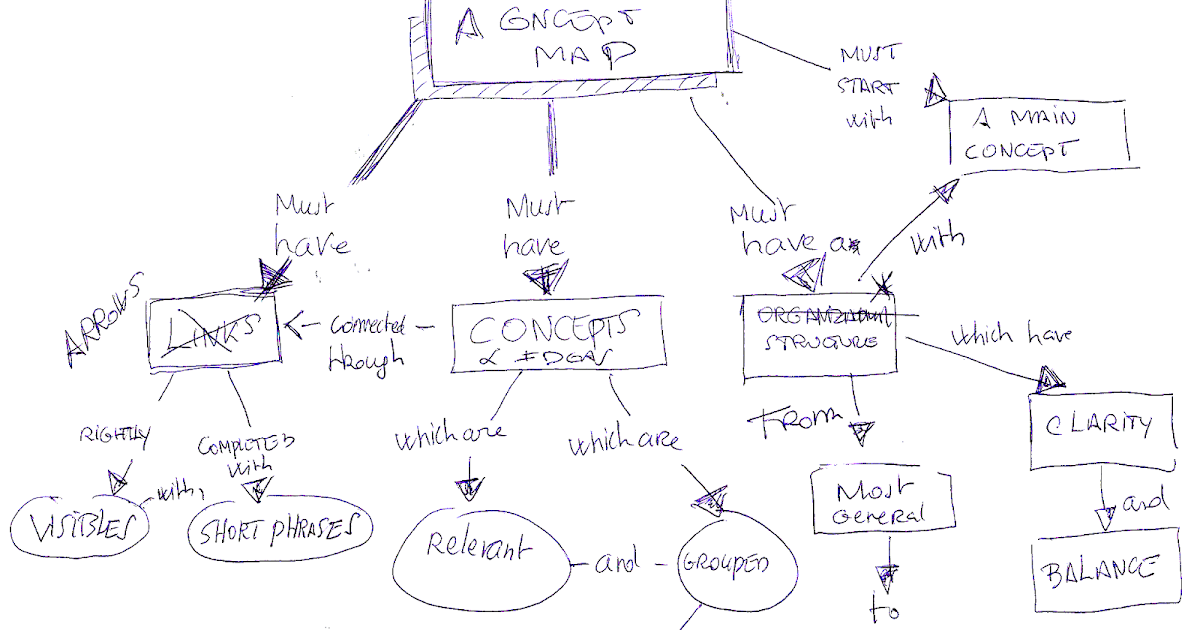 A CONCEPT
MAP
MUST
START
with
A MAIN
CONCEPT
Must
have
Must
have
Must
have a
with
ARROWS
LINKS
connected
trough
CONCEPTS
& IDEAS
STRUCTURE
which have
RIGHTLY
COMPLETED
with
which are
which are
FROM
CLARITY
VISIBLES
with
SHORT PHRASES
Relevant
and
GROUPED
Most
General
and
to
BALANCE